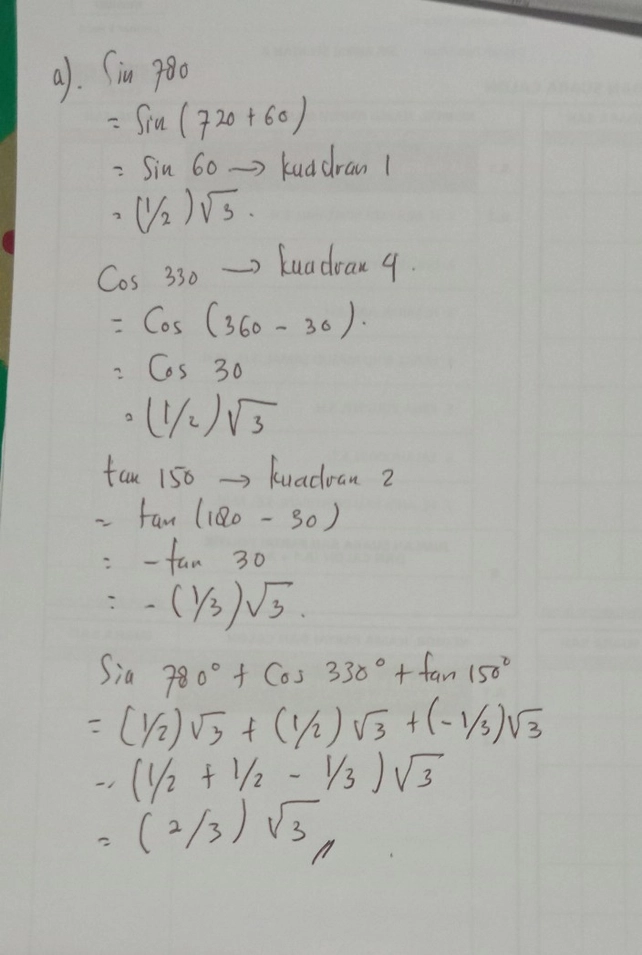 a). Sin 780
= Sin (720 + 60)
= Sin 60 → kuadran 1
= (1/2)√3.
Cos 330 → kuadran 4.
= Cos (360 - 30).
= Cos 30
= (1/2)√3
tan 150 → kuadran 2
= tan (180 - 30)
= -tan 30
= -(1/3)√3.
Sin 780° + Cos 330° + tan 150°
= (1/2)√3 + (1/2)√3 + (-1/3)√3
= (1/2 + 1/2 - 1/3)√3
= (2/3)√3 //